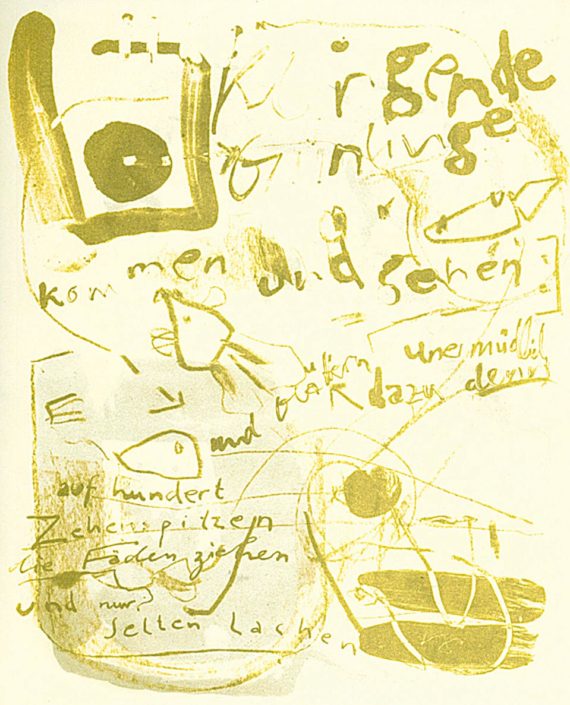 Klirgende
inlinge
kommen und gehen
unermüdlich
dazu denn
und
auf hundert
Zehenspitzen
die Fäden ziehen
und nur
selten lachen